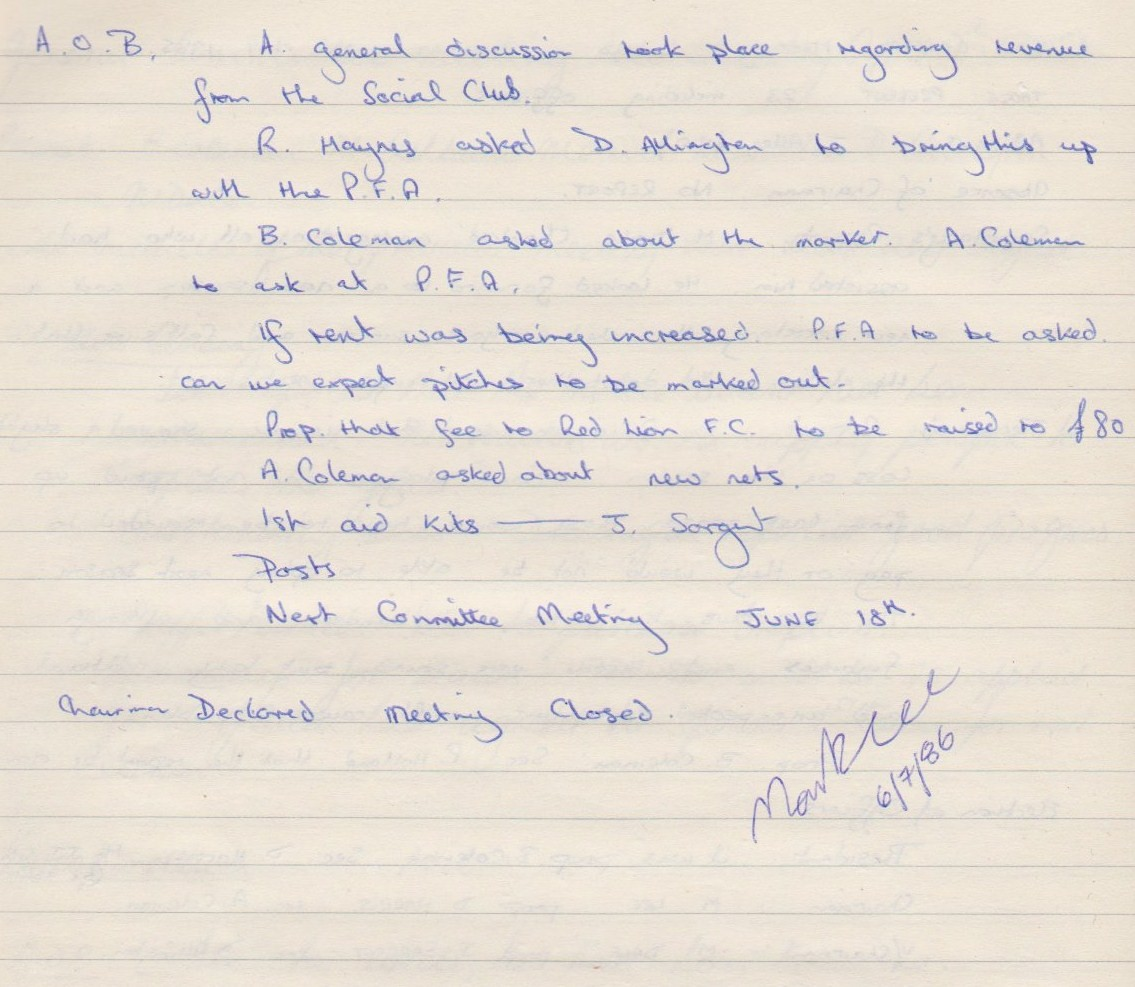 A.O.B. A general discussion took place regarding revenue
from the Social Club.
R. Haynes asked D. Allington to bring this up
with the P.F.A.
B. Coleman asked about the market. A. Coleman
to ask at P.F.A.
If rent was being increased. P.F.A to be asked.
can we expect pitches to be marked out.
Prop. that fee to Red Lion F.C. to be raised to £80
A. Coleman asked about new nets.
1st aid kits — J. Sargent
Posts
Next Committee Meeting JUNE 18th.
Chairman Declared Meeting Closed.
6/7/86